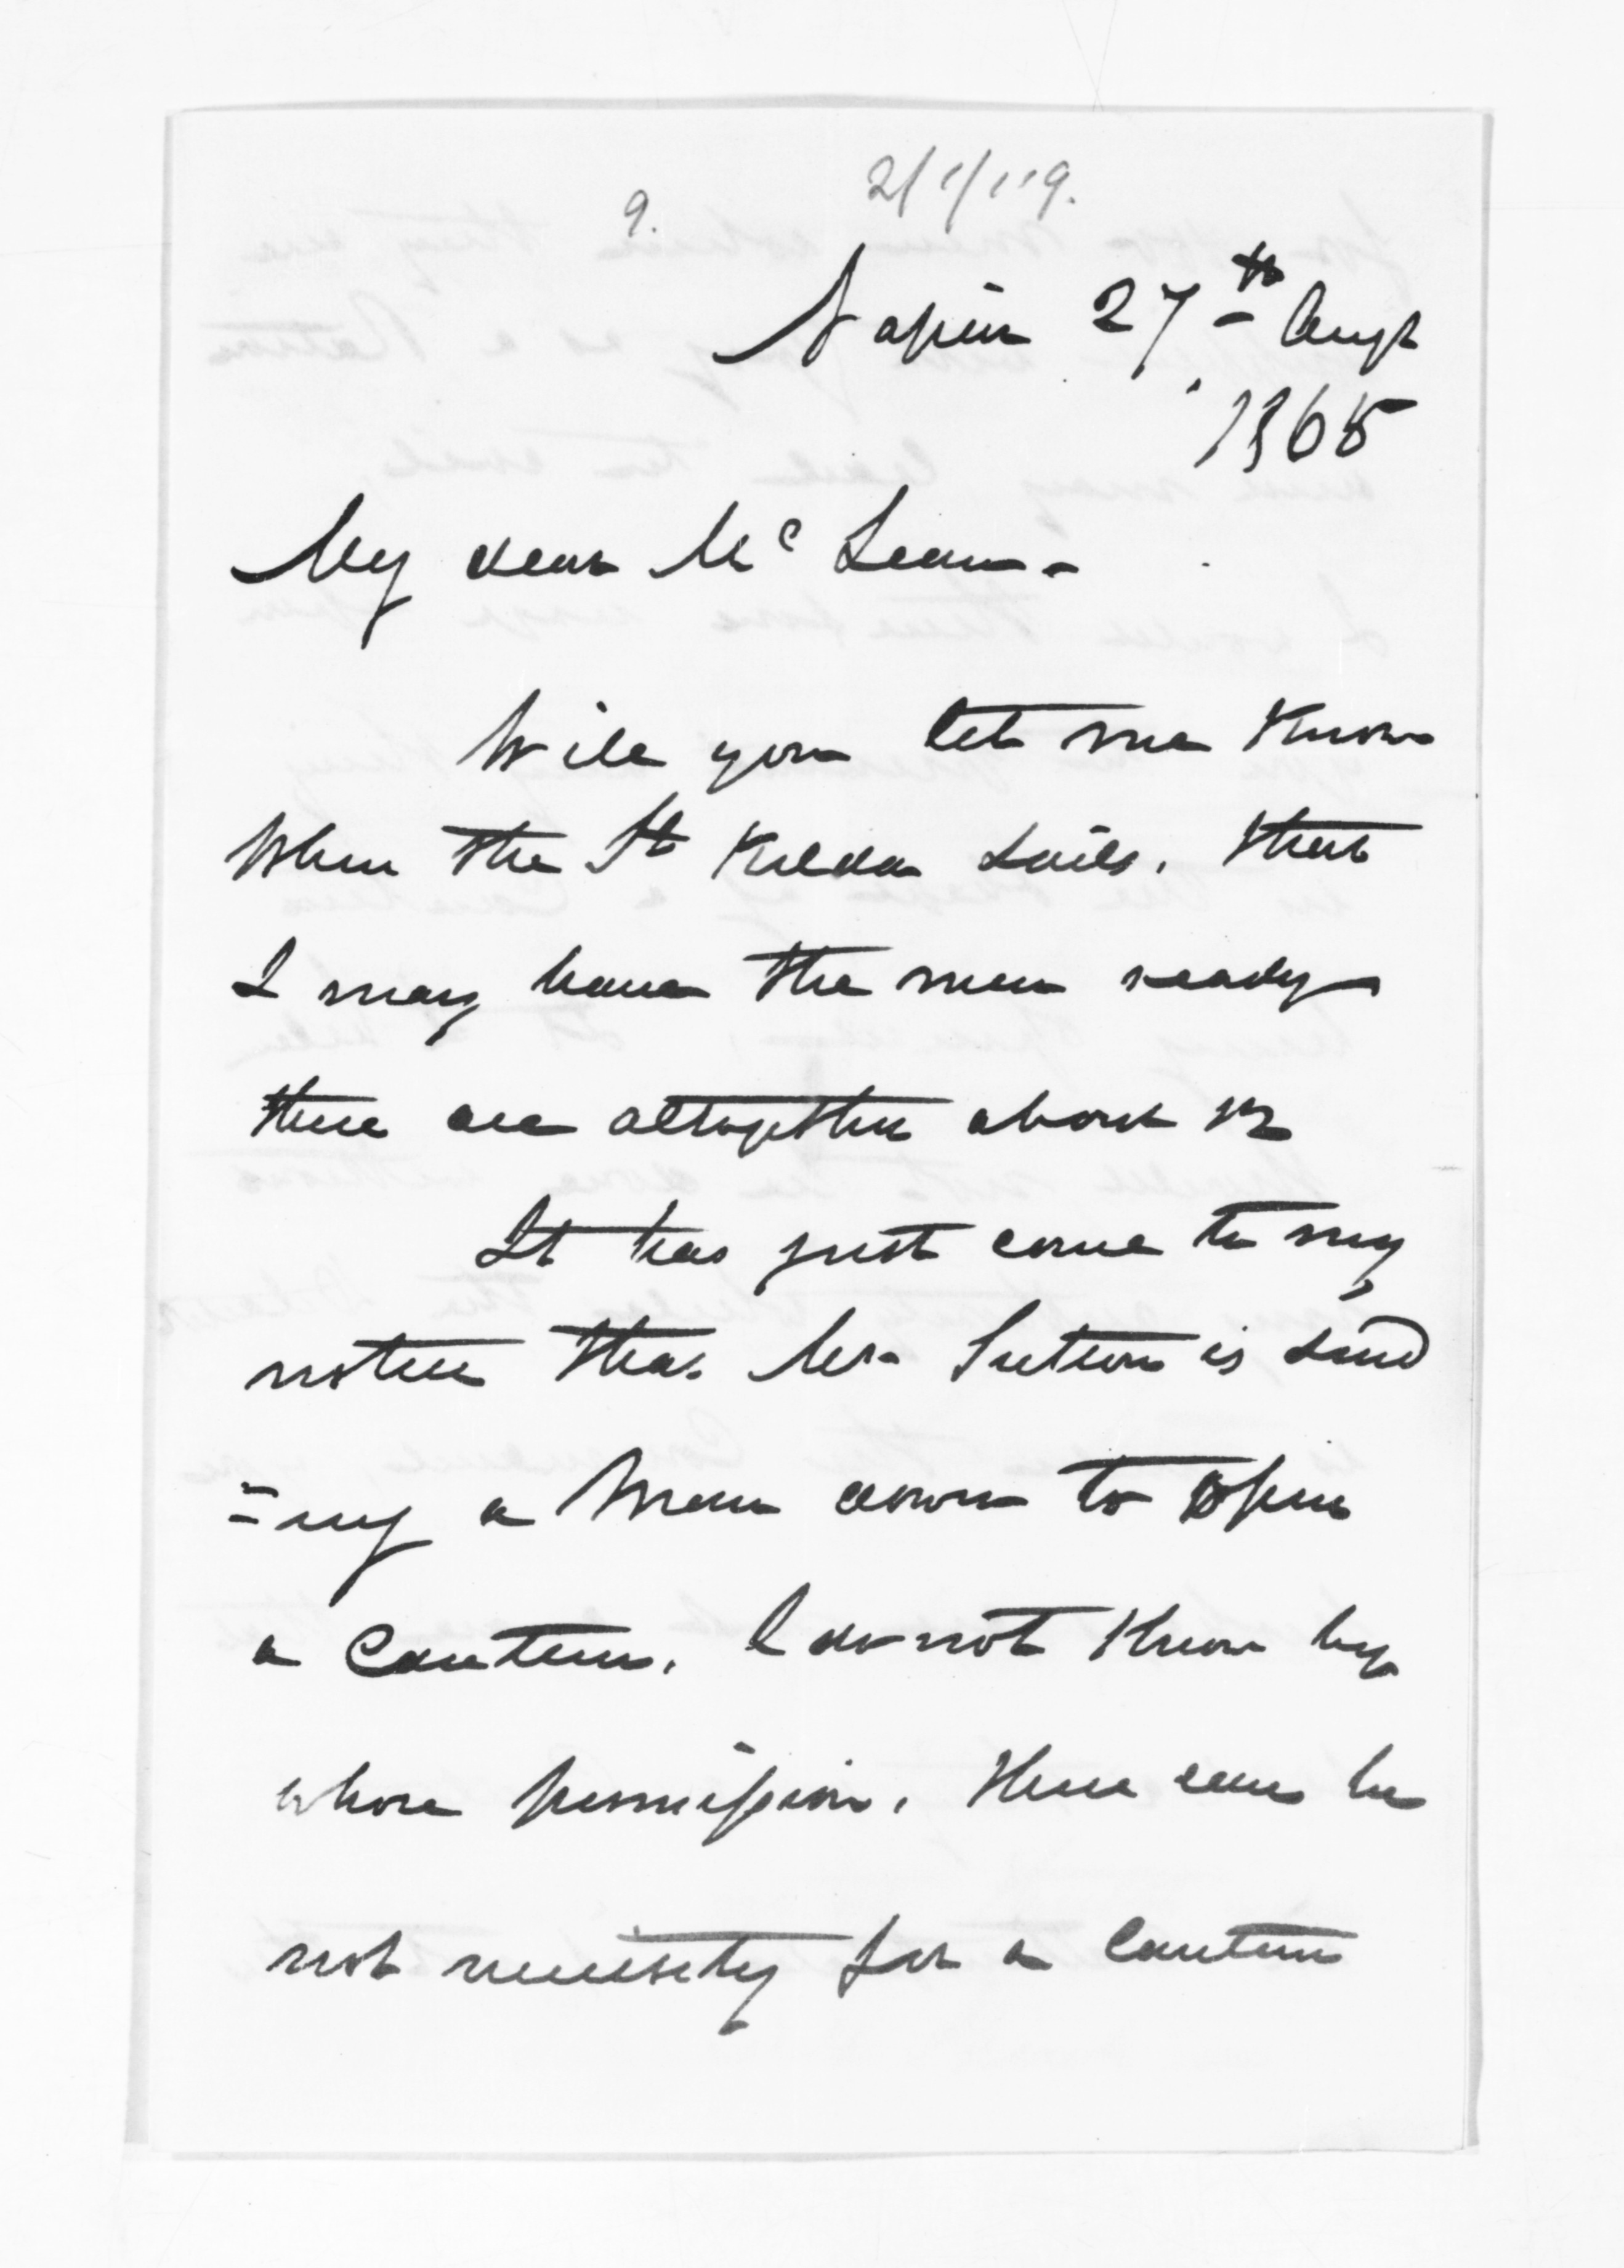 9.
2/1/119.
Napier 27th Augt
1865
My dear McLean -
Will you let me Know
When the St Kilda Sails. that
I may have the men ready
there are altogether about 12
It has just come to my
notice that Mr Sutton is send
=ing a Man down to open
a Canteen. I do not Know by
whose permission. there can be
not necessity for a Canteen